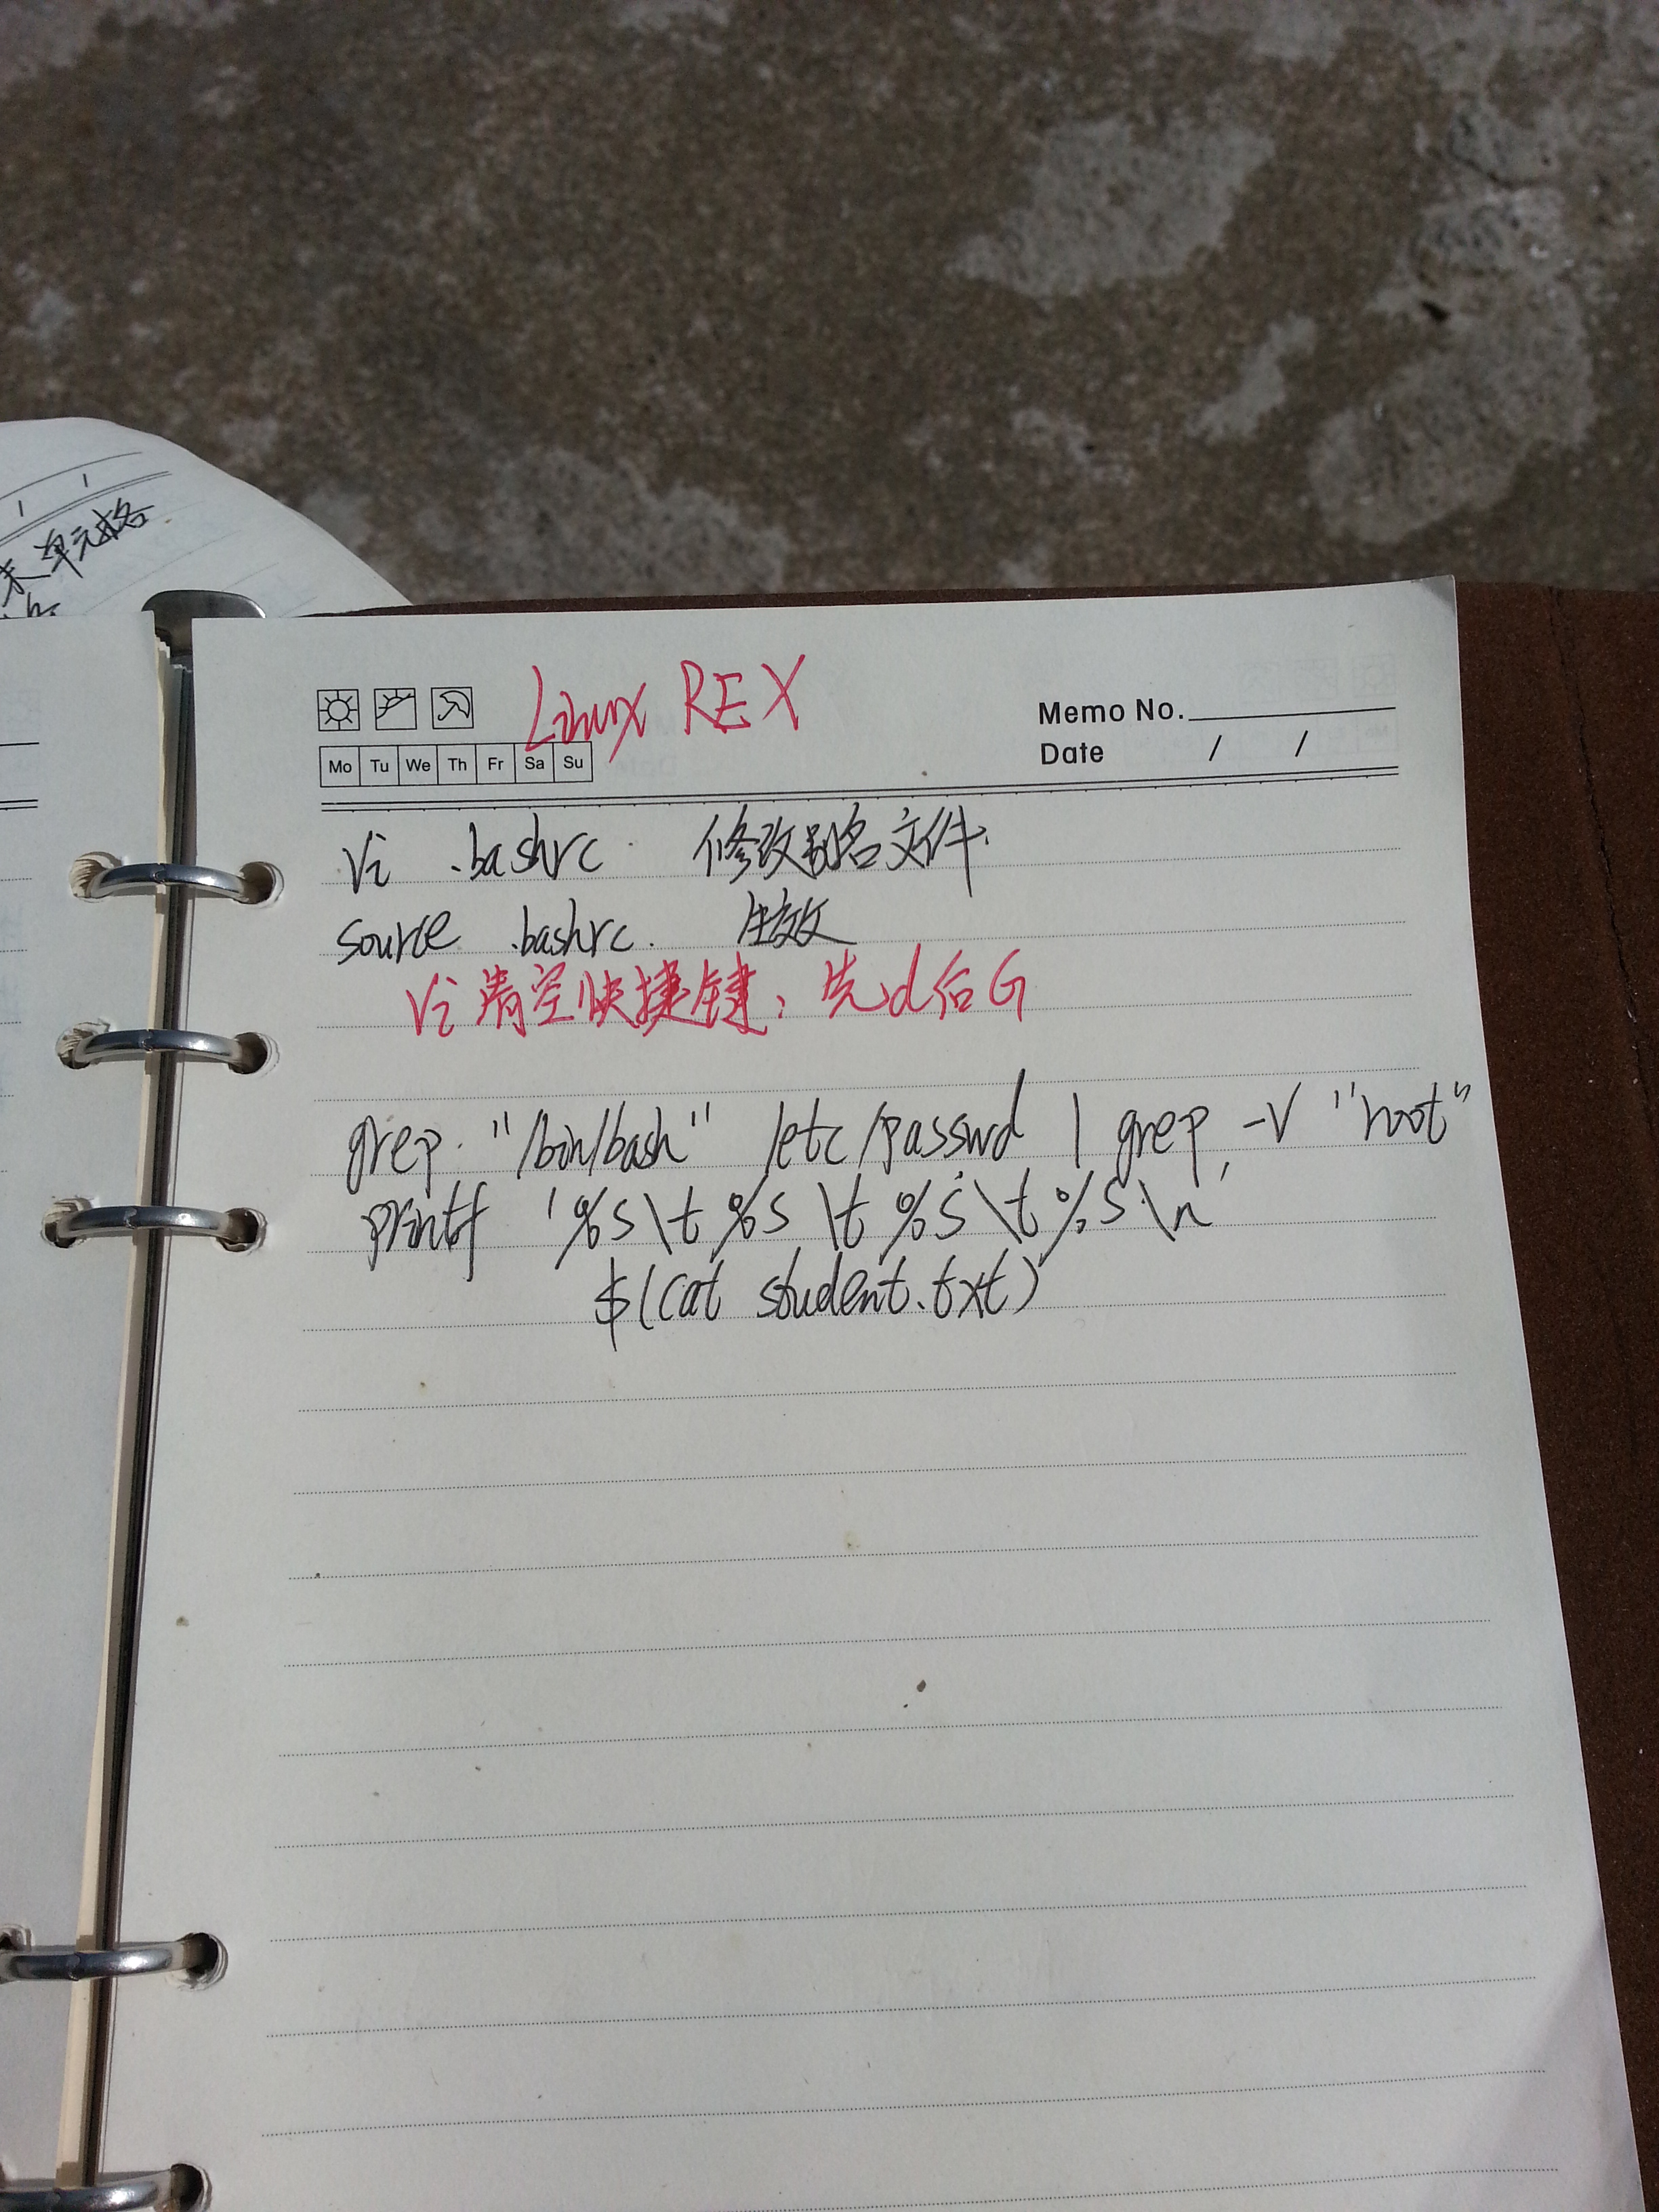 末单元格
Linux REX
Memo No.
Mo Tu We Th Fr Sa Su
Date / /
vi .bashrc 修改别名文件.
source .bashrc. 生效
vi 清空快捷键：先d后G
grep "/bin/bash" /etc/passwd | grep -v "root"
printf '%s\t %s \t %s\t %s\n'
$(cat student.txt)